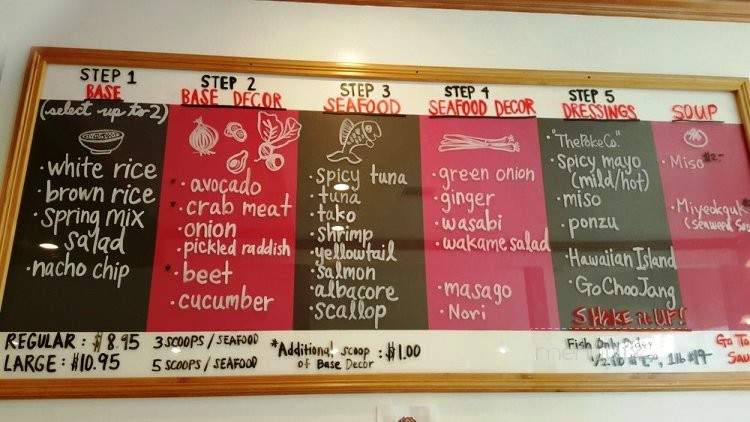 STEP 1
BASE
(select up to 2)
• white rice
• brown rice
• spring mix
salad
• nacho chip
STEP 2
BASE DECOR
* • avocado
* • crab meat
• onion
• pickled raddish
* • beet
• cucumber
STEP 3
SEAFOOD
• spicy tuna
• tuna
• tako
• shrimp
• yellowtail
• salmon
• albacore
• scallop
STEP 4
SEAFOOD DECOR
• green onion
• ginger
• wasabi
• wakame salad
• masago
• Nori
STEP 5
DRESSINGS
• "The Poke Co."
• spicy mayo
(mild/hot)
• miso
• ponzu
• Hawaiian Island
• GoChooJang
SHake it UP!
SOUP
• Miso
• Miyeokguk
(seaweed Sou
REGULAR : $8.95 3 SCOOPS / SEAFOOD
LARGE : $10.95 5 SCOOPS / SEAFOOD
*Additional scoop : $1.00
of Base Decor
Fish Only Order
1/2 lb 1 lb $19
Go To
Sau